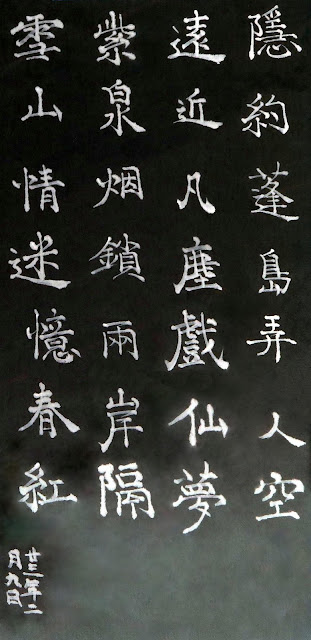 隱約蓬島弄人空
遠近凡塵戲仙夢
紫泉烟鎖兩岸隔
雪山情迷憶春紅
廿三年二
月九日